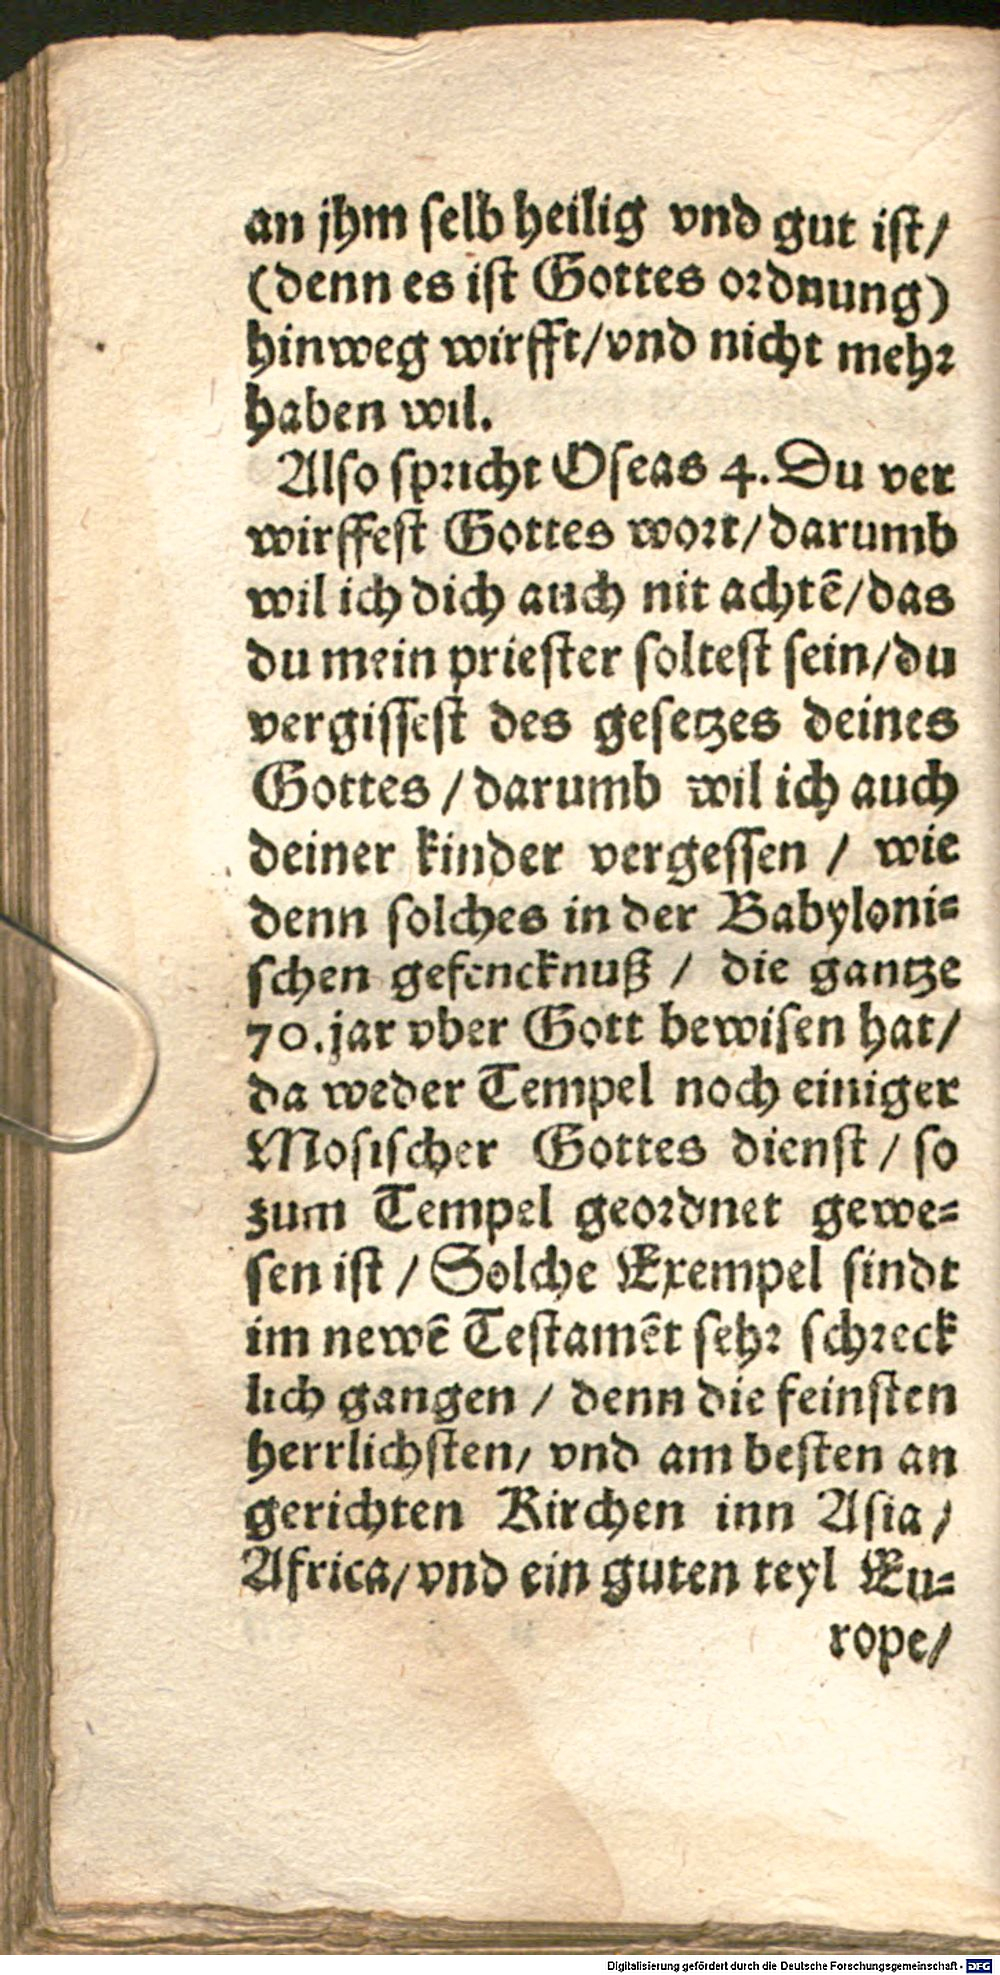 an jhm ſelb heilig vnd gut iſt/
(denn es iſt Gottes ordnung)
hinweg wirfft/vnd nicht mehr
haben wil.
Alſo ſpricht Oſeas 4. Du ver
wirffeſt Gottes wort/darumb
wil ich dich auch nit achtẽ/das
du mein prieſter ſolteſt ſein/du
vergiſſeſt des geſetzes deines
Gottes / darumb wil ich auch
deiner kinder vergeſſen / wie
denn ſolches in der Babyloni⸗
ſchen gefencknuß / die gantze
70. jar vber Gott bewiſen hat/
da weder Tempel noch einiger
Moſiſcher Gottes dienſt / ſo
zum Tempel geordnet gewe⸗
ſen iſt / Solche Exempel ſindt
im newẽ Teſtamẽt ſehr ſchreck
lich gangen / denn die feinſten
herrlichſten/ vnd am beſten an
gerichten Kirchen inn Aſia/
Africa/vnd ein guten teyl Eu⸗
rope/
Digitalisierung gefördert durch die Deutsche Forschungsgemeinschaft - DFG